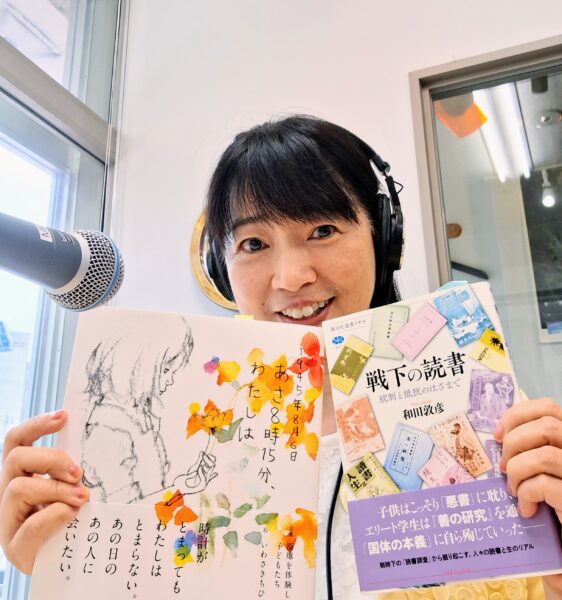 1945年8月6日
あさ8時15分、
わたしは
被爆を体験し
子どもたち
いわさきちひ
時計が
とまっても
わたしは
とまらない。
あの日の
あの人に
会いたい。
講談社選書メチエ
戦下の読書
統制と抵抗のはざまで
和田敦彦
子供はこっそり「悪書」に耽り、
エリート学生は「善の研究」を通
「国体の本義」に自ら殉じていった──
戦時下の「読書調査」から掘り起こす、人々の読書と生のリアル